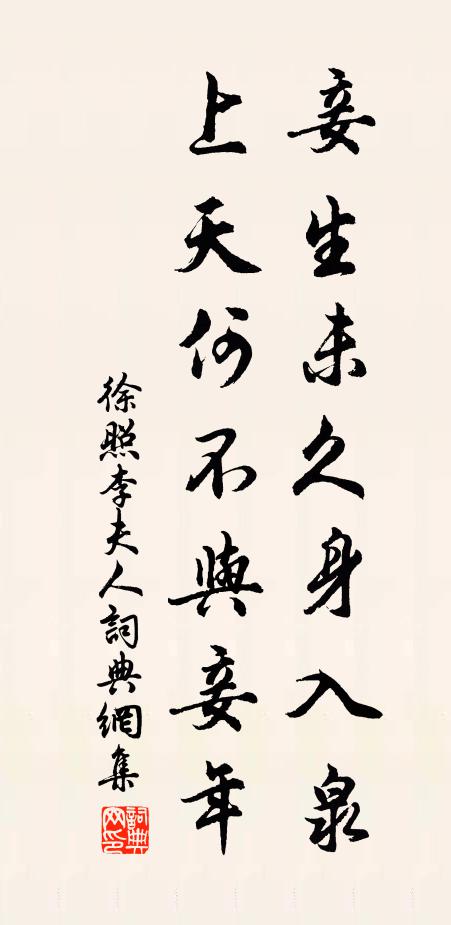 妾生未久身入泉
上天何不與妾年
徐照李夫人詞典網集
詞典网印